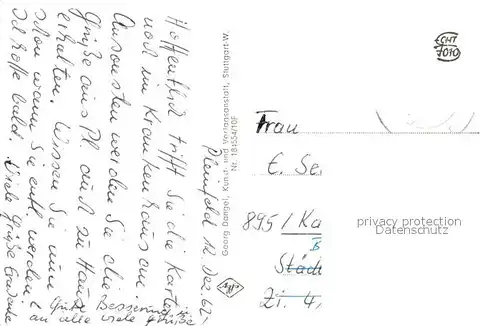 Pleinfeld 12. Dez. 62,
Hoffentlich trifft Sie die Karte
noch im Krankenhaus an.
Ansonsten werden Sie die
Grüße aus Pl. auch zu Hause
erhalten. Wissen Sie nun
schon wann Sie entl. werden?
Ich hoffe bald. Viele Grüße
Gute Besserung
an alle viele Grüße
Georg Dangel, Kunst- und Verlagsanstalt, Stuttgart-W.
Nr. 184554/10F
ECHT
FOTO
Frau
E. Se
895 / Ka
B
Städt
Zi. 4,
privacy protection
Datenschutz